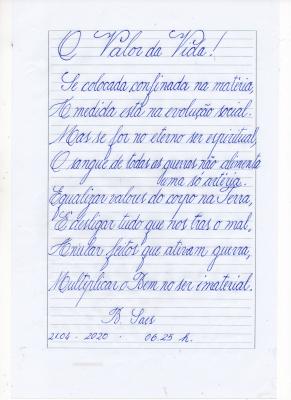 O Valor da Vida!
Se colocada confinada na matéria,
A medida está na evolução social.
Mas se for no eterno ser espiritual,
O sangue de todas as guerras não alimenta
uma só artéria.
Equalizar valores do corpo na Terra,
E desligar tudo que nos tras o mal,
Anular feitos que ativam guerra,
Multiplicar o Bem no ser imaterial.
B. Saes
21.04 - 2020 - 06:25 h.